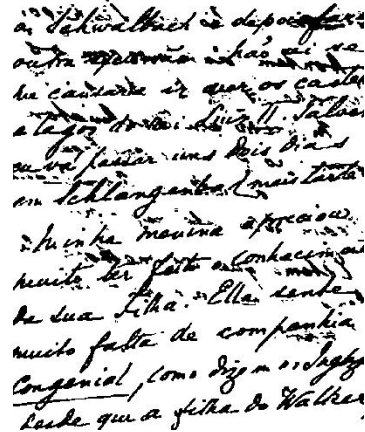 á Schwalbach e depois fare
outra não sei se
me cansarei ir ver os castel
e lagos do rei Luiz II. Talvez
eu vá passar uns dois dias
em Schlangenbad mais tarde
Minha menina apreciou
muito ter feito o conhecim
de sua filha. Ella sente
muito falta de companhia
congenial, como dizem os Inglez
desde que a filha do Walker